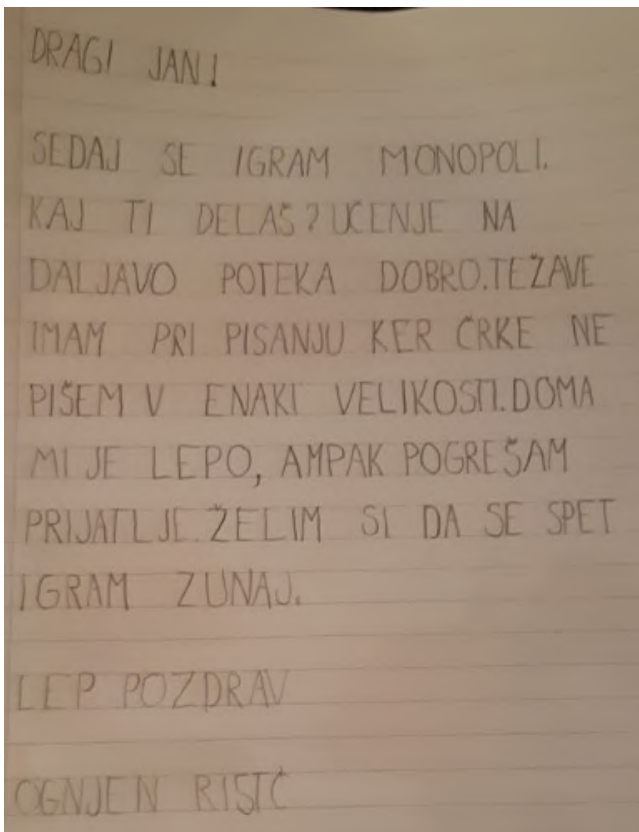 DRAGI JAN!
SEDAJ SE IGRAM MONOPOLI.
KAJ TI DELAŠ? UČENJE NA
DALJAVO POTEKA DOBRO. TEŽAVE
IMAM PRI PISANJU KER ČRKE NE
PIŠEM V ENAKI VELIKOSTI. DOMA
MI JE LEPO, AMPAK POGREŠAM
PRIJATLJE. ŽELIM SI DA SE SPET
IGRAM ZUNAJ.
LEP POZDRAV
OGNJEN RISTĆ